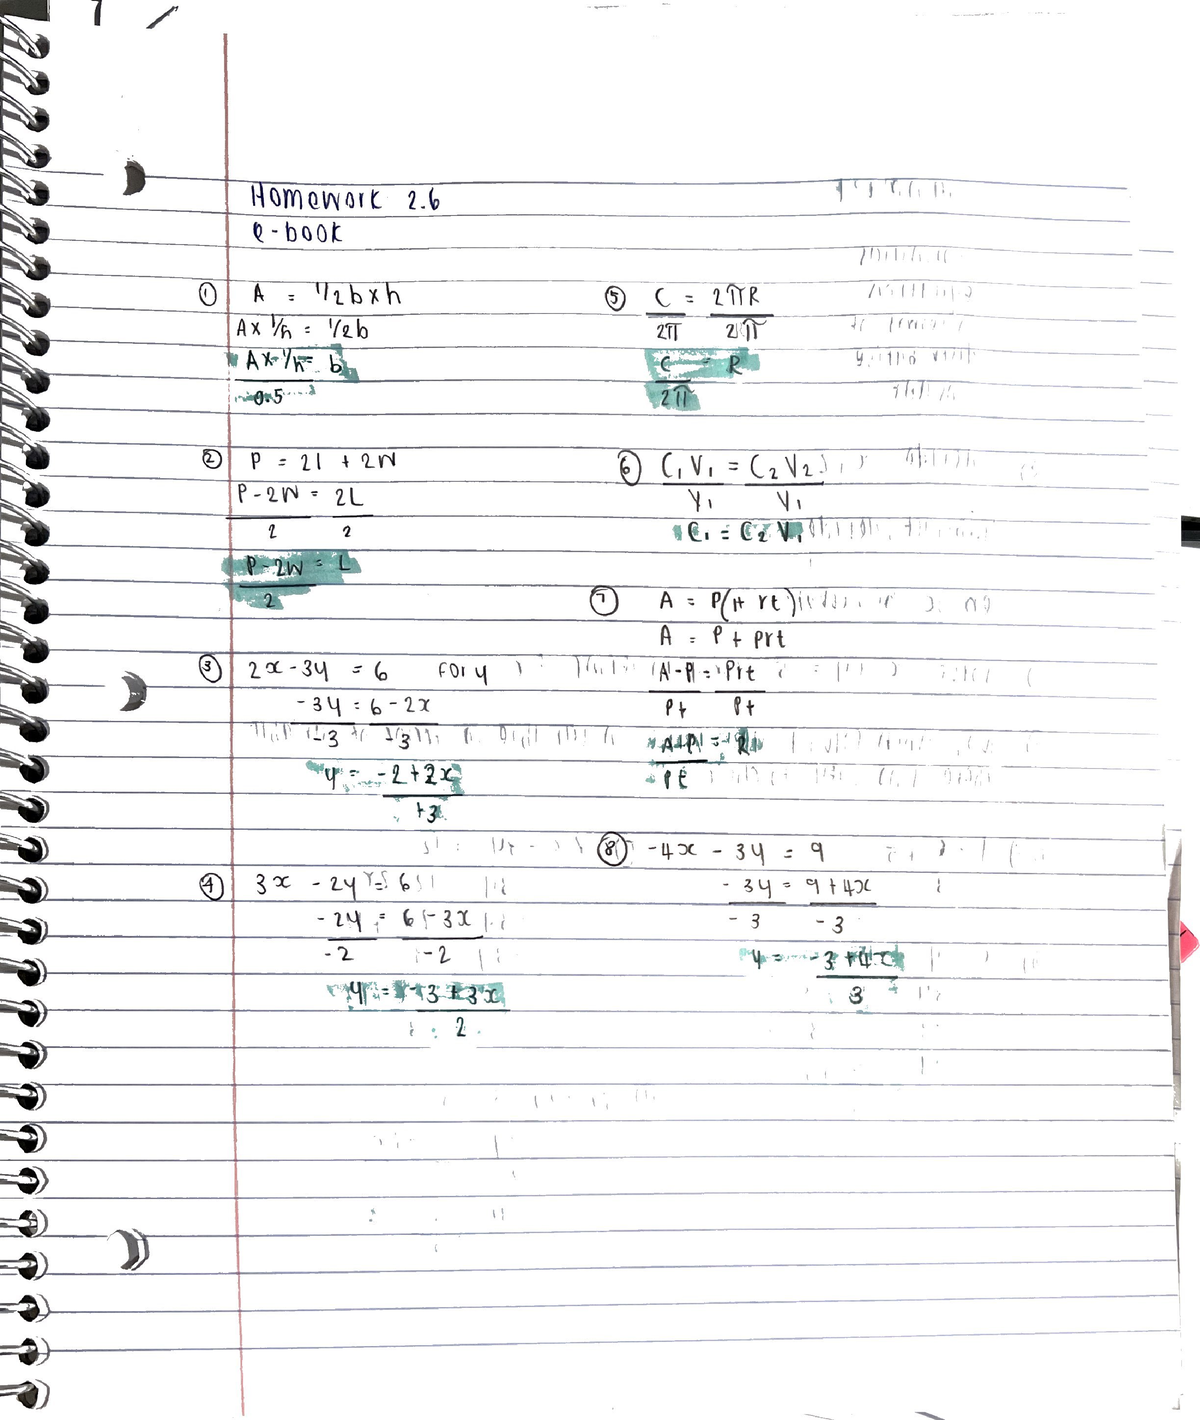 Homework 2.6
e-book
① A = 1/2 b x h
A x 1/h = 1/2 b
A x 1/h = b
0.5
② P = 2l + 2W
P - 2W = 2L
2 2
P - 2W = L
2
③ 2x - 3y = 6 for y
- 3y = 6 - 2x
-3 -3
y = -2 + 2x
+3
④ 3x - 2y = 6
- 2y = 6 - 3x
-2 -2
y = -3 + 3x
2
⑤ C = 2πR
2π 2π
C = R
2π
⑥ C₁V₁ = C₂V₂
V₁ V₁
C₁ = C₂ V₁
⑦ A = P(1+ rt)
A = P + prt
A - P = Prt
Pt Pt
A-P = R
Pt
⑧ -4x - 3y = 9
- 3y = 9 + 4x
- 3 - 3
y = -3 + 4x
3